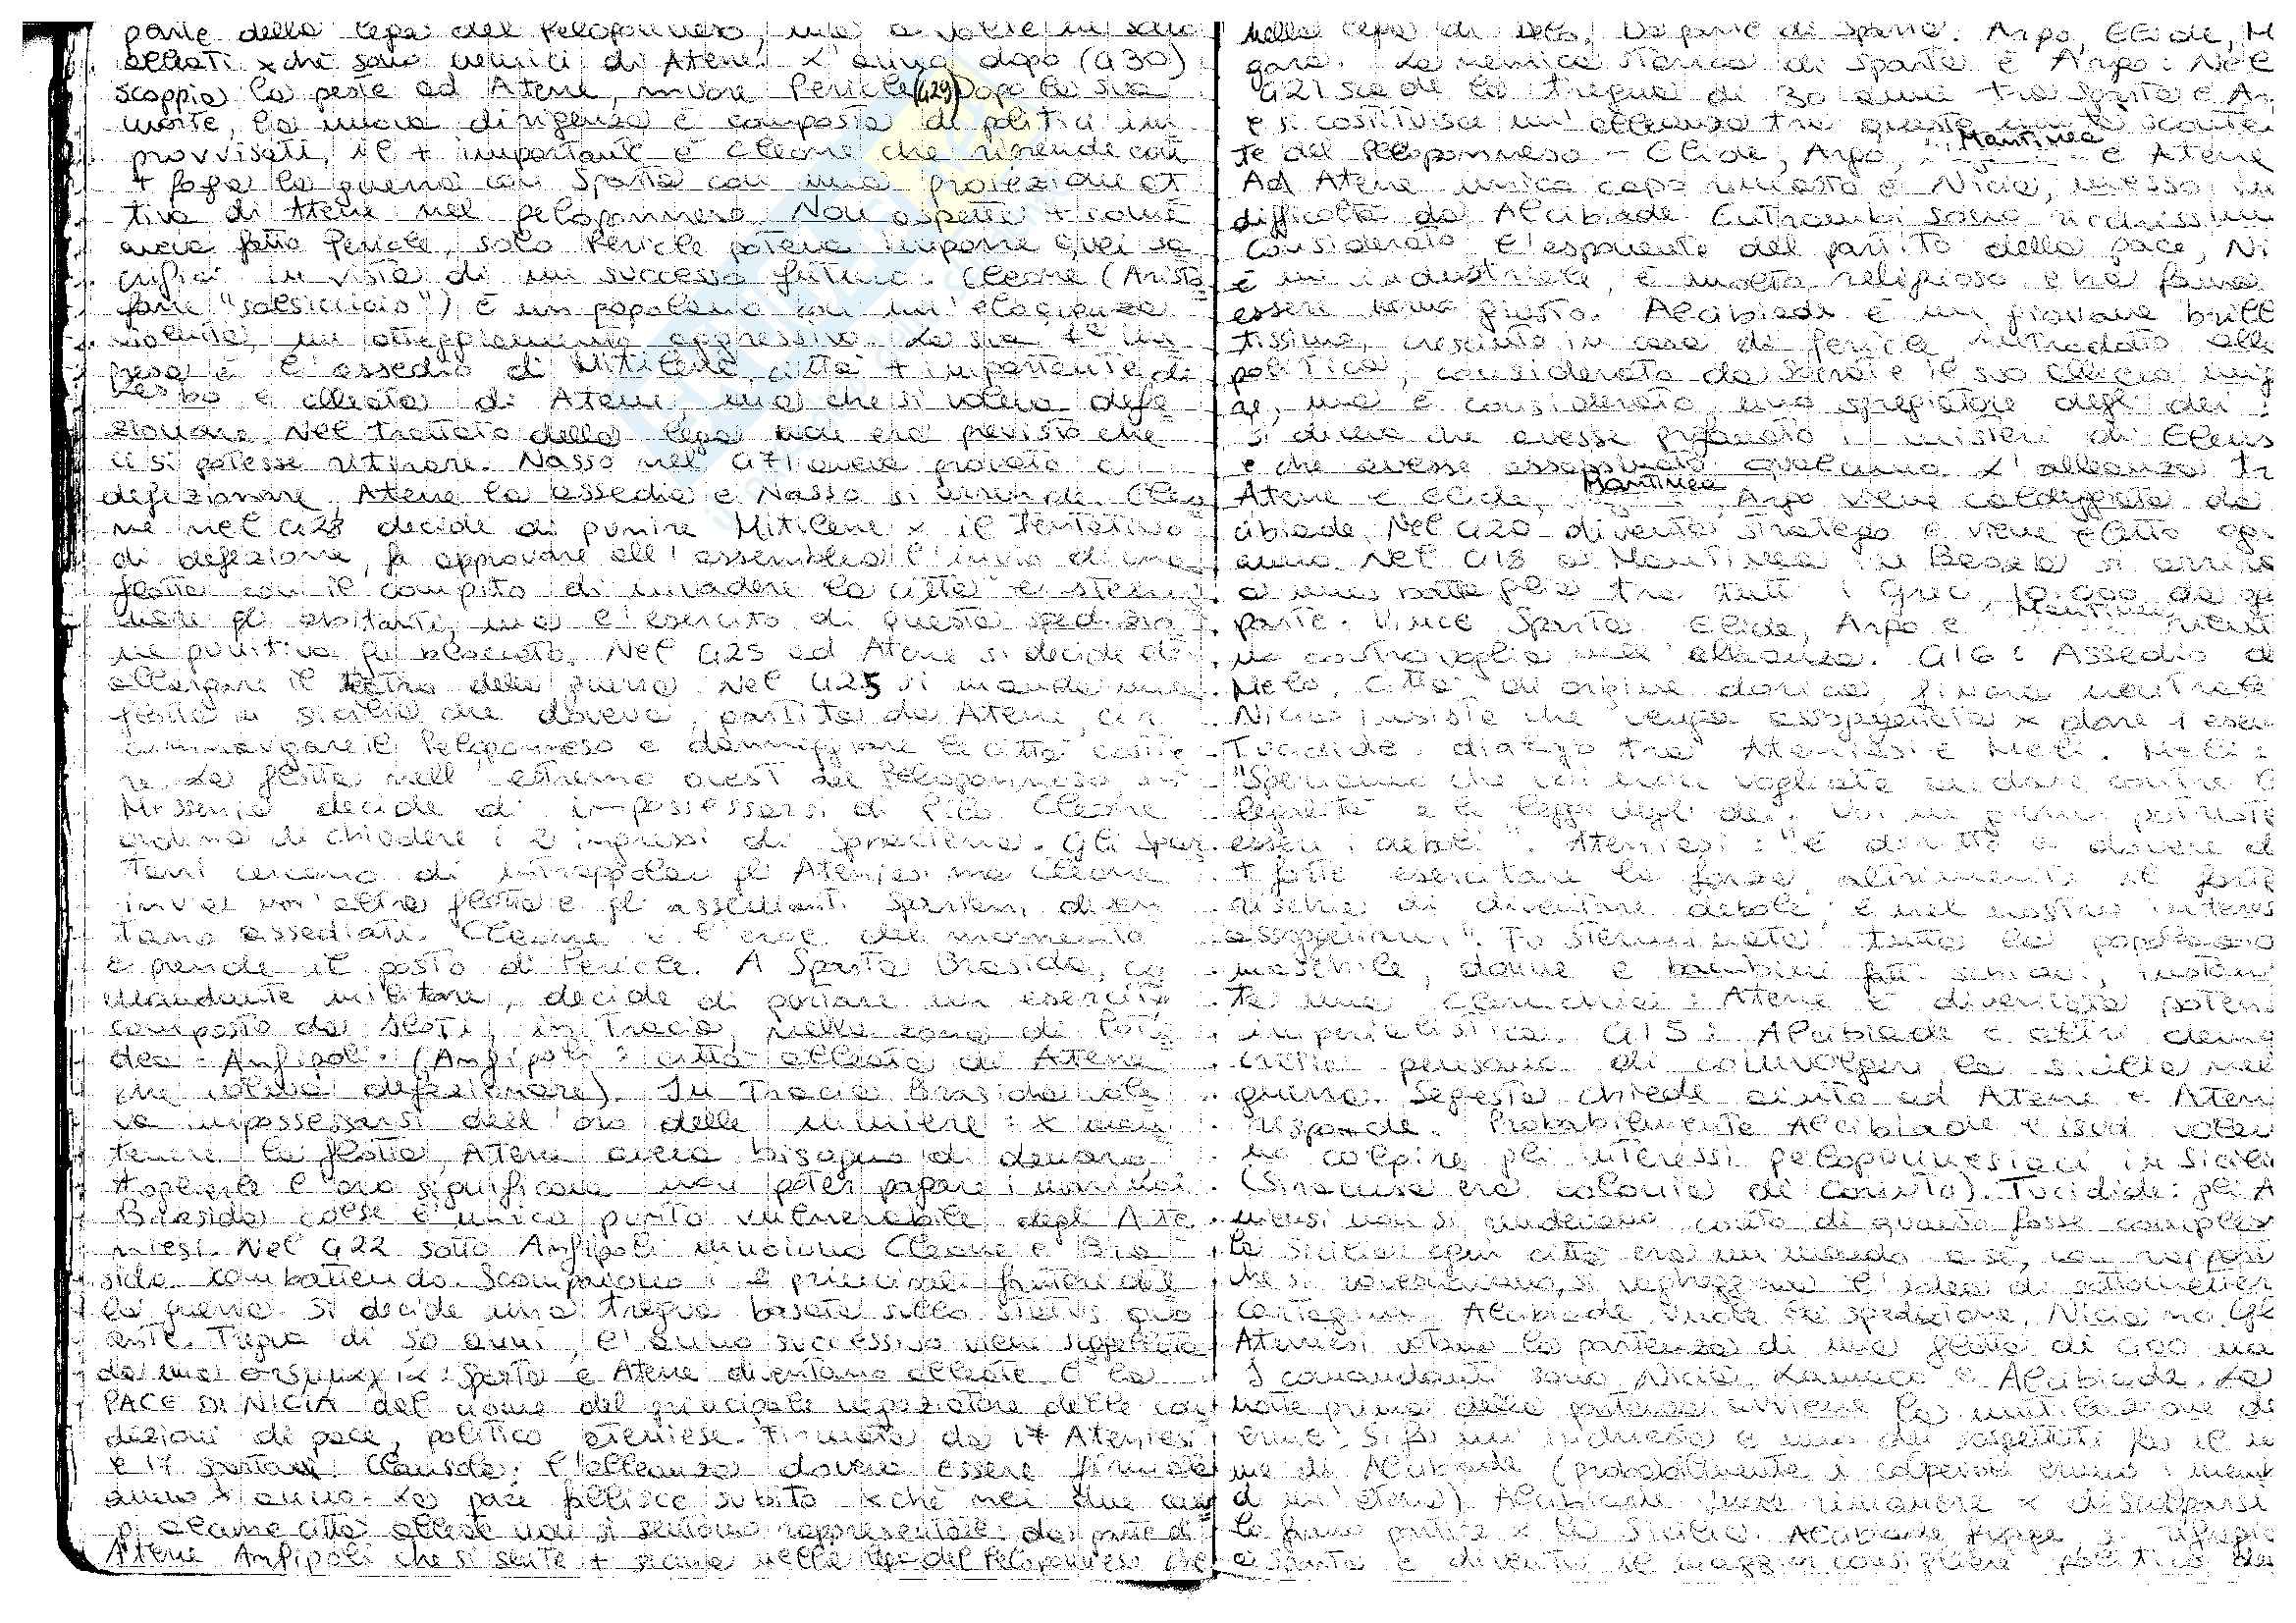 parte della lega del Peloponneso, ma a volte in seno
alleati xchè sono nemici di Atene. L'anno dopo (430)
scoppia la peste ad Atene, muore Pericle (429) Dopo la sua
morte, la nuova dirigenza è composta di politici im
provvisati, il + importante è Cleone che riprende con
+ foga la guerra con Sparta con una proiezione at
tiva di Atene nel Peloponneso. Non aspetta + come
aveva fatto Pericle, solo Pericle poteva imporre quei sa
crifici in vista di un successo futuro. Cleone (Aristo
fane "salsicciaio") è un popolano con un'eloquenza
violenta, un atteggiamento aggressivo. La sua 1ª im
presa è l'assedio di Mitilene, città + importante di
Lesbo e alleata di Atene, ma che si voleva defe
zionare. Nel trattato della lega non era previsto che
ci si potesse ritirare. Nasso nel 471 aveva provato a
defezionare, Atene la assedia e Nasso si arrende. Cleo
ne nel 428 decide di punire Mitilene x il tentativo
di defezione, fa approvare all'assemblea l'invio di una
flotta con il compito di invadere la città e stermi
nare gli abitanti, ma l'esercito di questa spedizio
ne punitiva fu bloccato. Nel 425 ad Atene si decide di
allargare il teatro della guerra. Nel 425 si manda una
flotta in Sicilia che doveva, partita da Atene, cir
cumnavigare il Peloponneso e danneggiare le città costie
re. La flotta nell'estremo ovest del Peloponneso in
Messenia decide di impossessarsi di Pilo. Cleone
ordina di chiudere i 2 ingressi di Sfacteria. Gli Spar
tani cercano di intrappolare gli Ateniesi ma Cleone
invia un'altra flotta e gli assedianti Spartani diven
tano assediati. Cleone è l'eroe del momento
e prende il posto di Pericle. A Sparta Brasida, co
mandante militare, decide di portare un esercito
composto da Iloti, in Tracia, nella zona di Poti
dea - Anfipoli. (Anfipoli: città alleata di Atene
che voleva defezionare). In Tracia Brasida vole
va impossessarsi dell'oro delle miniere: x man
tenere la flotta, Atene aveva bisogno di denaro,
toglierle l'oro significava non poter pagare i marinai.
Brasida colse l'unico punto vulnerabile degli Ate
niesi. Nel 422 sotto Anfipoli muoiono Cleone e Bra
sida combattendo. Scompaiono i 2 principali fautori del
la guerra. Si decide una tregua basata sullo status quo
ante. Tregua di 50 anni, l'anno successivo viene suggellata
da una : Sparta e Atene diventano alleate. È la
PACE DI NICIA dal nome del principale negoziatore delle con
dizioni di pace, politico ateniese. Firmata da 17 Ateniesi
e 17 Spartani. Clausola: l'alleanza doveva essere firmata
anno x anno. La pace fallisce subito xchè nei due cam
pi alcune città alleate non si sentono rappresentate: da parte di
Atene Anfipoli che si sente + sicura nella lega del Peloponneso che
nella lega di Delo. Da parte di Sparta: Argo, Elide, M
gara. La nemica storica di Sparta è Argo: Nel
421 scade la tregua di 30 anni tra Sparta e Ar
e si costituisce un'alleanza tra queste unità sconten
te del Peloponneso - Elide, Argo, Mantinea e Atene
Ad Atene unico capo rimasto è Nicia, messo in
difficoltà da Alcibiade. Entrambi sono ricchissimi
Considerato l'esponente del partito della pace, Ni
è un industriale, è molto religioso e ha fama
essere uomo giusto. Alcibiade è un giovane brill
tissimo, cresciuto in casa di Pericle, introdotto alla
politica, considerato da Socrate il suo allievo mig
re, ma è considerato uno spregiatore degli dei:
si diceva che avesse profanato i misteri di Eleus
e che avesse assassinato qualcuno. L'alleanza tr
Atene e Elide, Mantinea, Argo viene caldeggiata da
cibiade. Nel 420 diventa stratego e viene eletto ogni
anno. Nel 418 a Mantinea in si arriva
a una battaglia tra tutti i Greci, 10.000 da ogni
parte. Vince Sparta. Elide, Argo e Mantinea rient
no controvoglia nell'alleanza. 416: Assedio di
Melo, città di origine dorica, finora neutrale
Nicia insiste che venga assoggettata x dare 1 esem
Tucidide: dialogo tra Ateniesi e Meli. Meli:
"Speriamo che voi non vogliate andare contro la
legalità e le leggi degli dei. Voi un giorno potreste
essere i deboli". Ateniesi: "è diritto e dovere del
+ forte esercitare la forza, altrimenti il forte
rischia di diventare debole, è nel nostro interes
assoggettarvi". Fu sterminata tutta la popolazio
maschile, donne e bambini fatti schiavi, instaur
ta una cleruchia: Atene è diventata potenz
imperialistica. 415: Alcibiade e altri demag
pensano di coinvolgere la Sicilia nella
guerra. Segesta chiede aiuto ad Atene e Aten
risponde. Probabilmente Alcibiade e i suoi voleva
no colpire gli interessi peloponnesiaci in Sicili
(Siracusa era colonia di Corinto). Tucidide: gli A
niesi non si rendevano conto di quanto fosse comples
la Sicilia: ogni città era un mondo a sé, con rapporti
che si rovesciavano, si vagheggiava l'idea di sottometter
Cartagine. Alcibiade vuole la spedizione, Nicia no. Gli
Ateniesi votano la partenza di una flotta di 400 na
I comandanti sono Nicia, Lamaco e Alcibiade. La
notte prima della partenza avviene la mutilazione di
erme: si fa un'inchiesta e uno dei sospettati fa il no
me di Alcibiade (probabilmente i colpevoli erano i memb
di un'eteria). Alcibiade vuole rimanere x discolparsi
lo fanno partire x la Sicilia. Alcibiade fugge si rifugia
a Sparta e diventa il maggior consigliere politico da